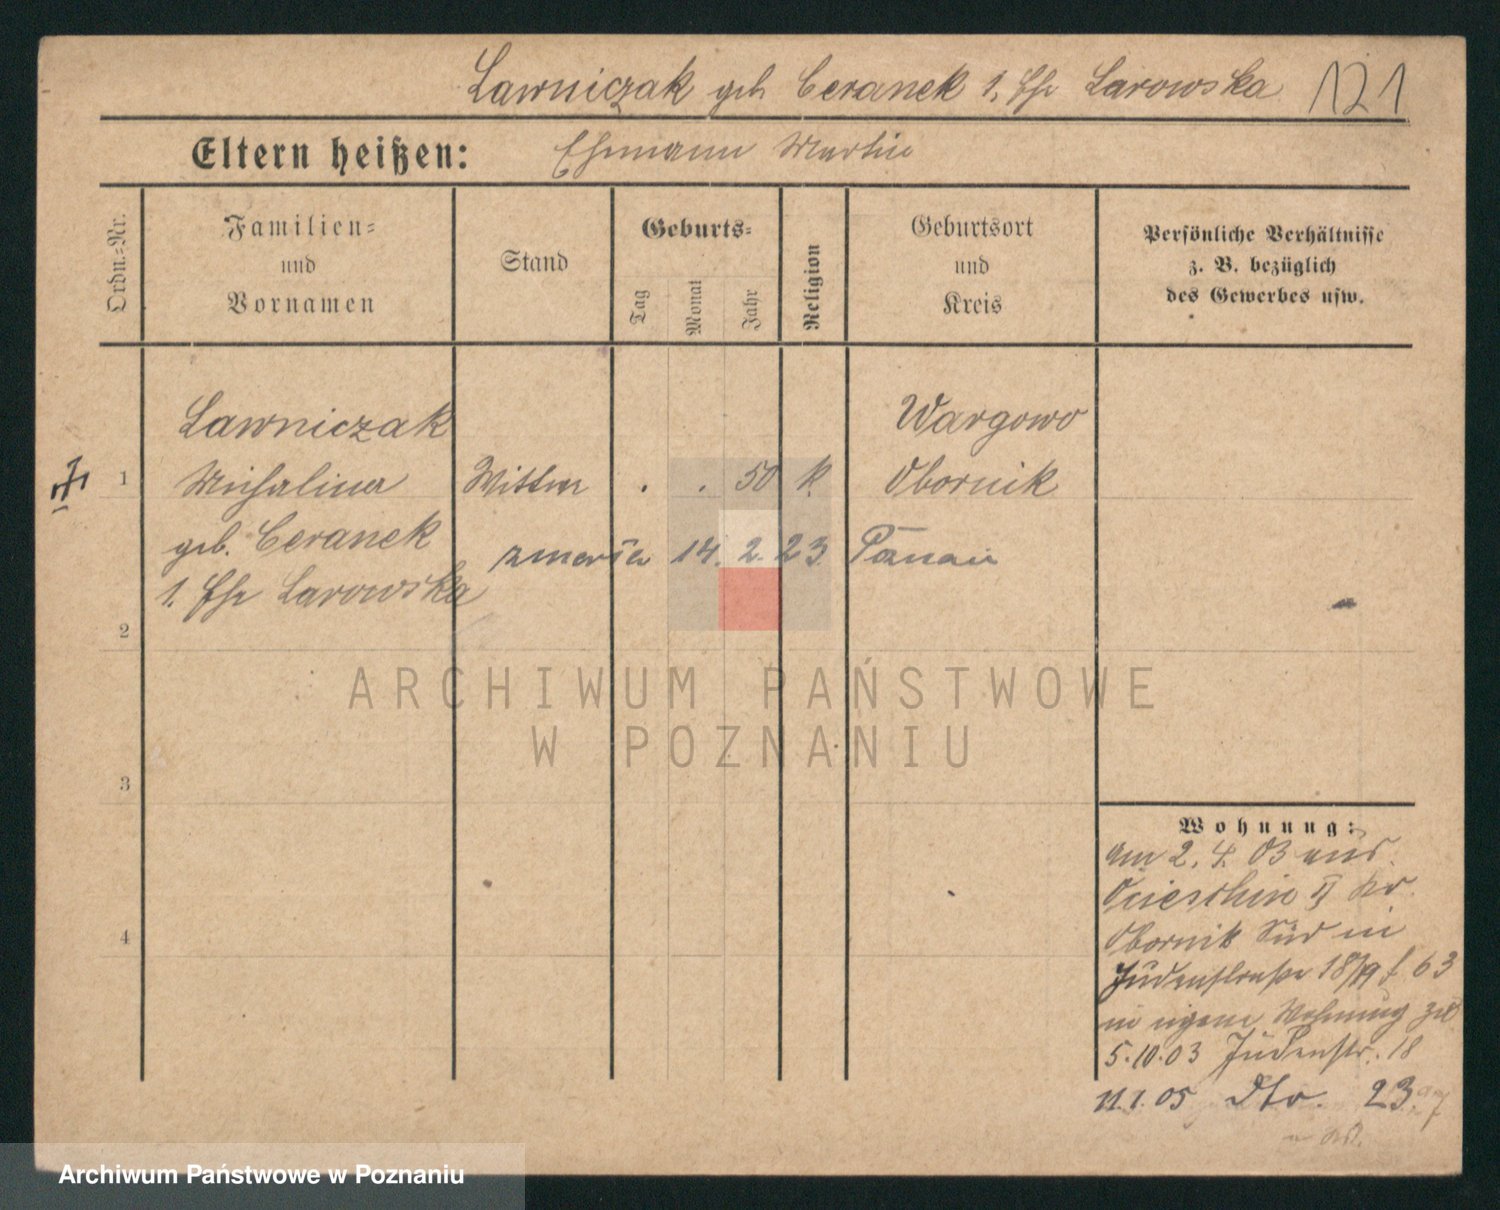 Lawniczak geb Ceranek 1. Ehe Larowska 121
Eltern heißen: Ehemann Martin
Ordn.-Nr.
Familien-
und
Vornamen
Stand
Geburts-
Tag
Monat
Jahr
Religion
Geburtsort
und
Kreis
Persönliche Verhältnisse
z. B. bezüglich
des Gewerbes usw.
Lawniczak Wargowo
1 Michalina Wittwe . . 50 k. Obornik
geb. Ceranek zmarła 14. 2. 23
1. Ehe Larowska
2
ARCHIWUM PAŃSTWOWE
W POZNANIU
3
4
Wohnung:
am 2. 4. 03 aus
II Kr.
Obornik Süd in
Judenstraße 18/19 f 63
in eigene Wohnung zu
5.10.03 Judenstr. 18
11.1.05 Dto. 23
Archiwum Państwowe w Poznaniu